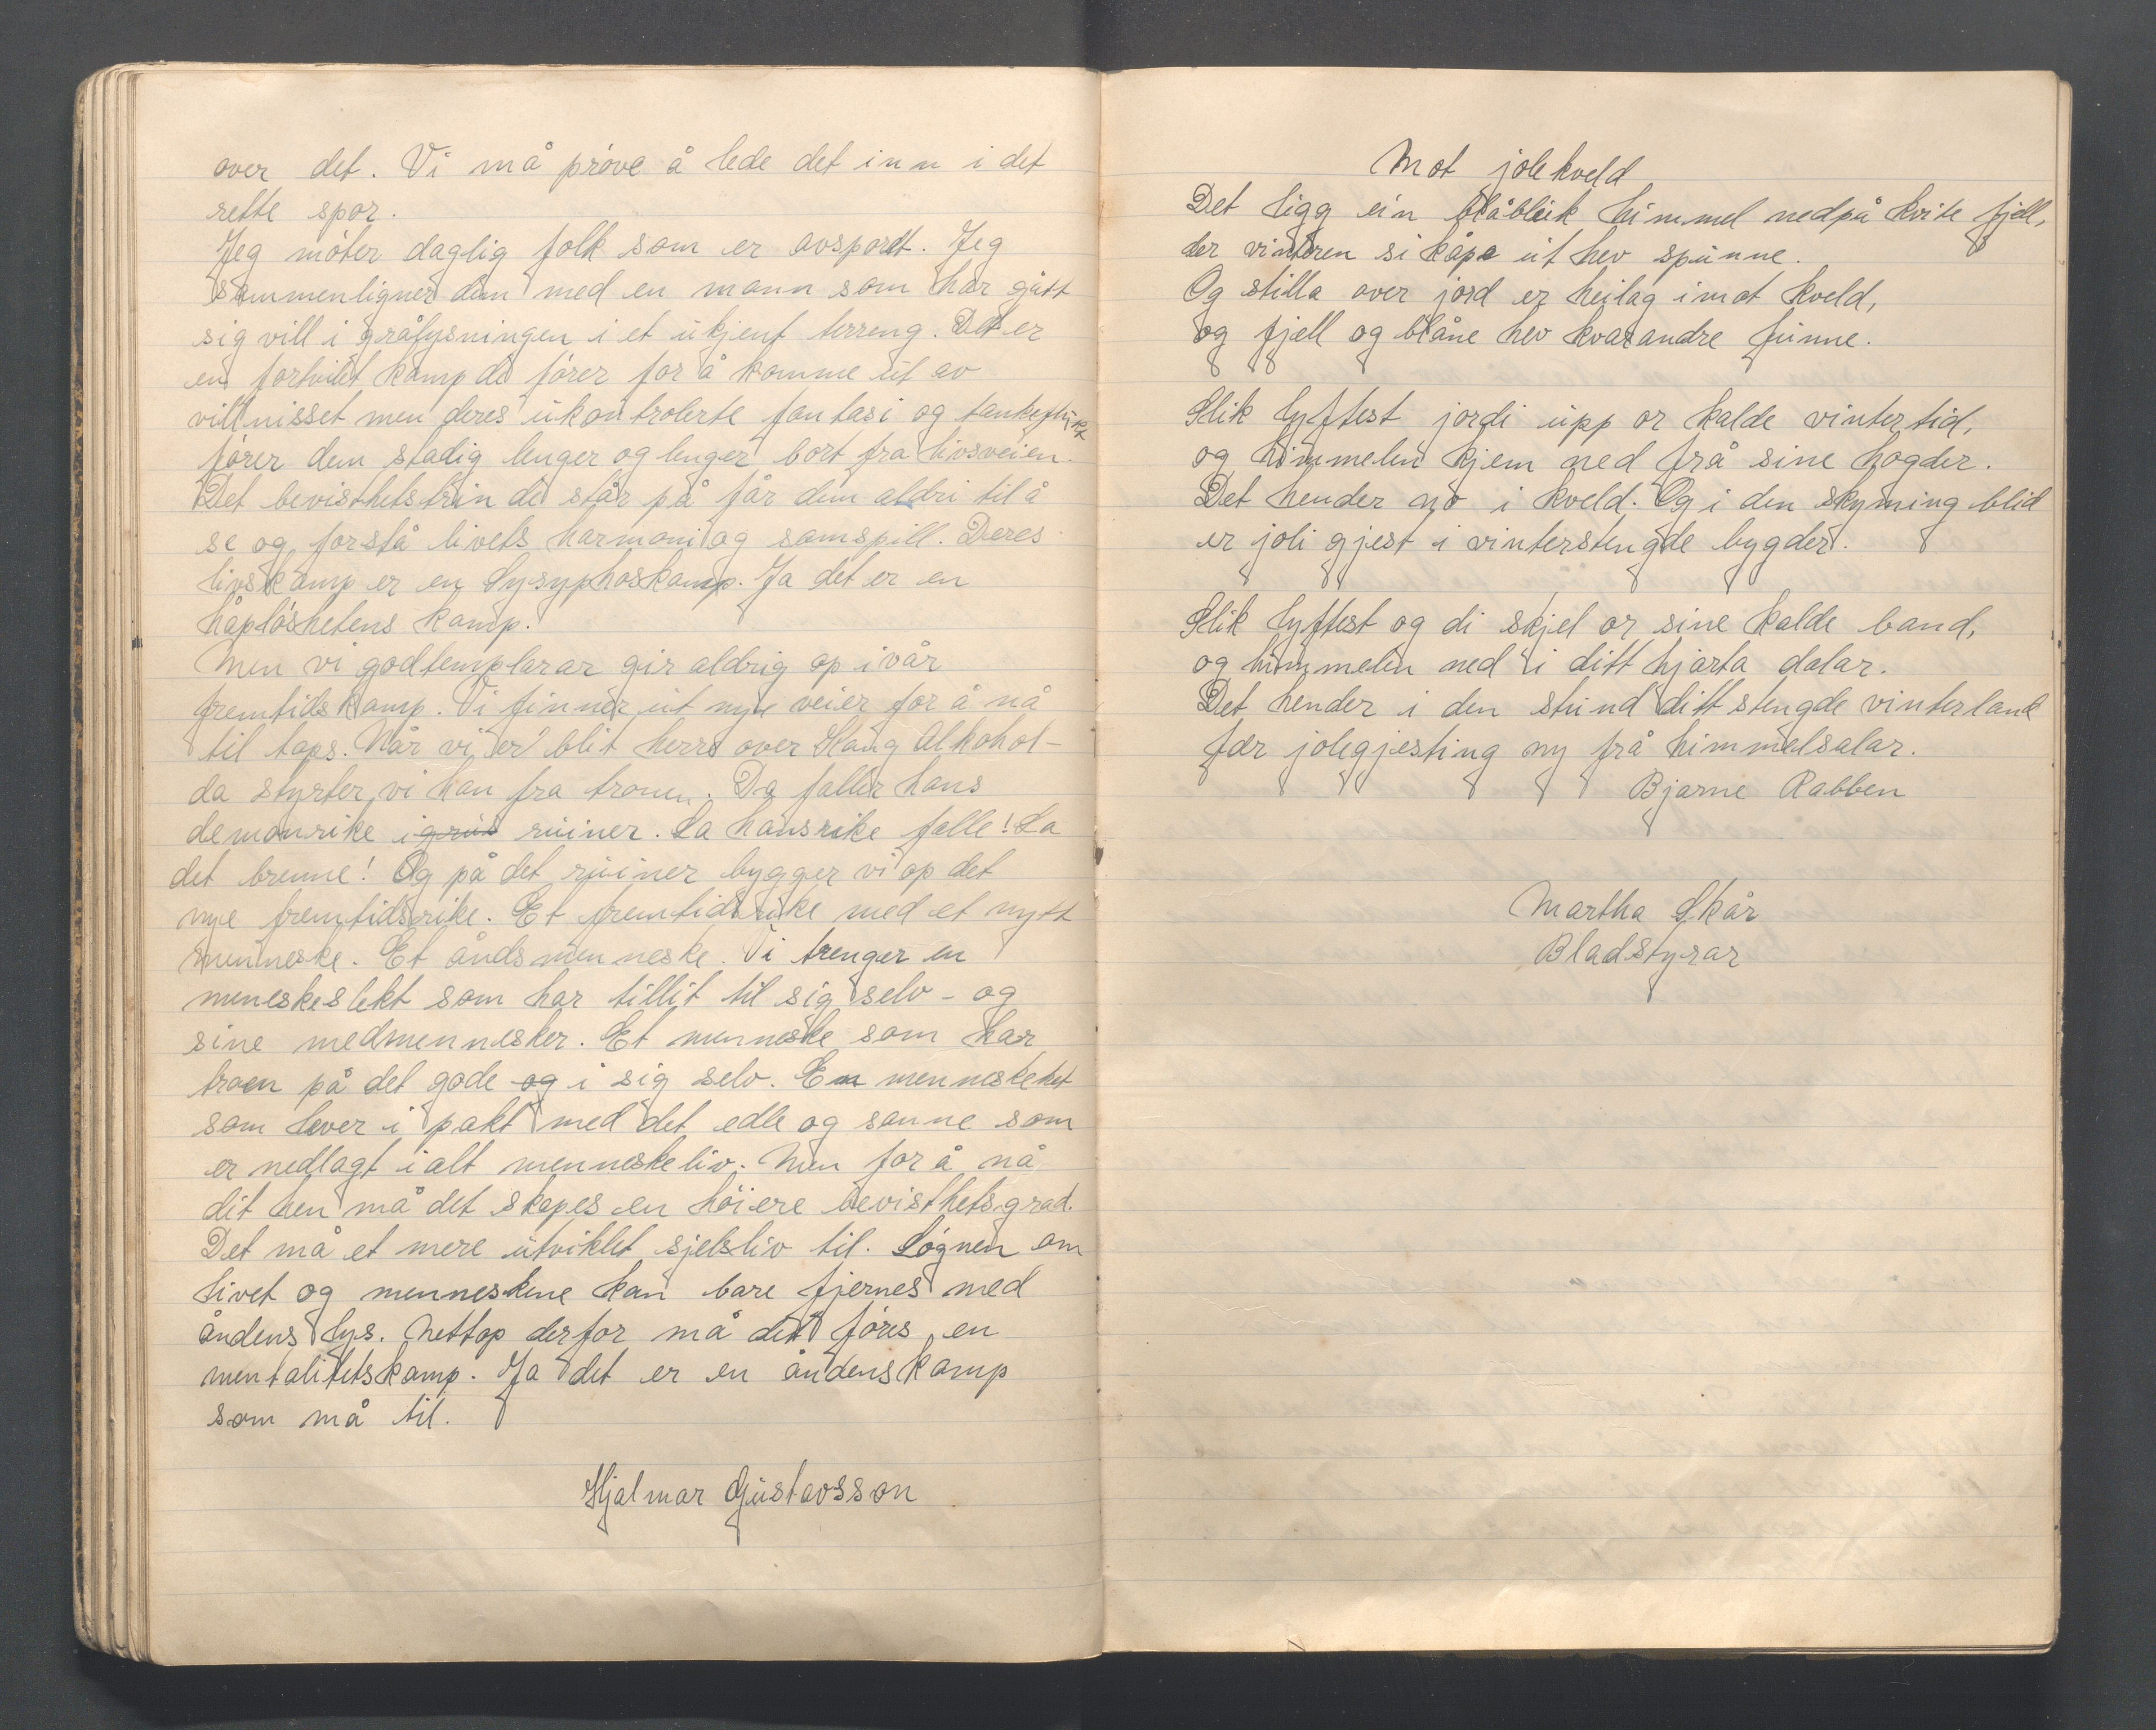 over det. Vi må prøve å lede det inn i det
rette spor.
Jeg møter daglig folk som er avsporet. Jeg
sammenligner dem med en mann som har gått
sig vill i grålysningen i et ukjent terreng. Det er
en fortvilet kamp de fører for å komme ut av
villnisset men deres ukontrolerte fantasi og tankeflukt
fører dem stadig lenger og lenger bort fra livsveien.
Det bevisthetstrin de står på får dem aldri til å
se og forstå livets harmoni og samspill. Deres
livskamp er en Sysyphoskamp. Ja det er en
håpløshetens kamp.
Men vi godtemplarar gir aldrig op i vår
fremtidskamp. Vi finner ut nye veier for å nå
til tops. Når vi er blit herre over Kong Alkohol-
da styrter vi han fra tronen. Da faller hans
demonrike i grus ruiner. La hans rike falle! La
det brenne! Og på det ruiner bygger vi op det
nye fremtidsrike. Et fremtidsrike med et nytt
menneske. Et åndsmenneske. Vi trenger en
meneskeslekt som har tillit til sig selv - og
sine medmennesker. Et menneske som har
troen på det gode og i sig selv. En menneskehet
som lever i pakt med det edle og sanne som
er nedlagt i alt menneskeliv. Men for å nå
dit hen må det skapes en høiere bevisthetsgrad.
Det må et mere utviklet sjelsliv til. Løgnen om
livet og menneskene kan bare fjernes med
åndens lys. Nettop derfor må det føres en
mentalitetskamp. Ja det er en åndenskamp
som må til.
Hjalmar Gustavsson
Mot jolekveld
Det ligg ein blåbleik himmel nedpå kvite fjell,
der vinteren si kåpe ut hev spunne.
Og stilla over jord er heilag imot kveld,
og fjell og blåne hev kvarandre funne.
Slik lyftest jordi upp or kalde vintertid,
og himmelen kjem ned frå sine høgder.
Det hender no i kveld. Og i den skyming blid
er joli gjest i vinterstengde bygder.
Slik lyftest og di skjel or sine kalde band,
og himmelen ned i ditt hjarta dalar.
Det hender i den stund ditt stengde vinterland
fær jolegjesting ny frå himmelsalar.
Bjarne Rabben
Martha Skår
Bladstyrar